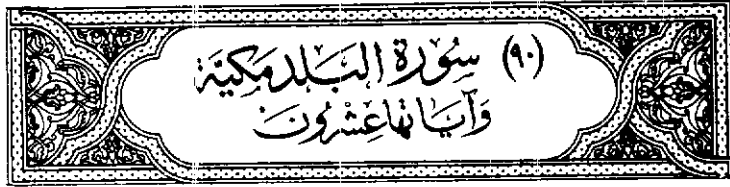 (٩٠) سُورَة البَلَدِ مَكيَّة
وَآيَاتهَا عِشْرُونَ